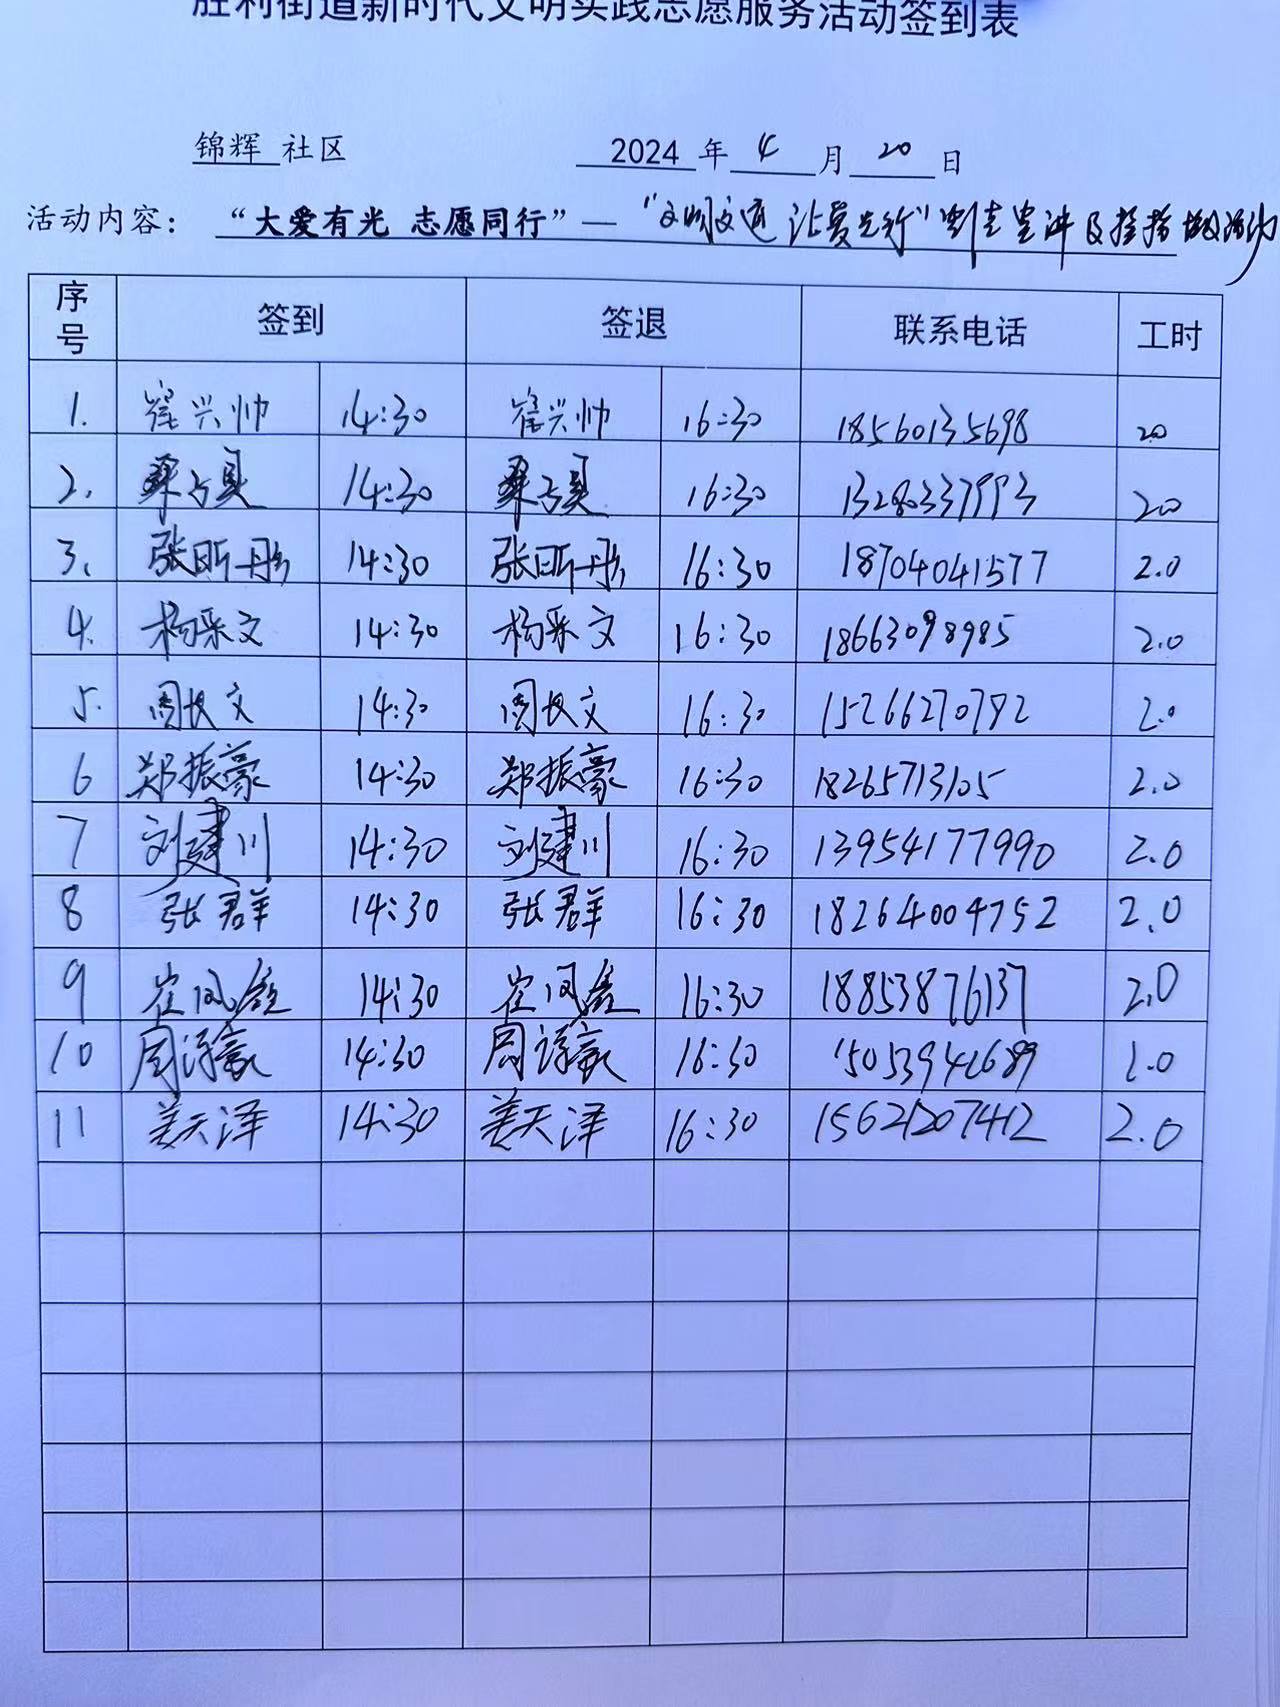 胜利街道新时代文明实践志愿服务活动签到表
锦辉 社区 2024 年 4 月 20 日
活动内容： “大爱有光 志愿同行”— “文明交通 让爱先行”
序号 签到 签退 联系电话 工时
1. 崔兴帅 14:30 崔兴帅 16:30 18560135698 20
2. 14:30 16:30 13280337993 20
3. 张昕彤 14:30 张昕彤 16:30 18704041577 2.0
4. 杨采文 14:30 杨采文 16:30 18663098985 2.0
5. 周长文 14:30 周长文 16:30 15266270792 2.0
6 郑振豪 14:30 郑振豪 16:30 18265713105 2.0
7 刘建川 14:30 刘建川 16:30 13954177990 2.0
8 张群 14:30 张群 16:30 18264004752 2.0
9 崔凤鑫 14:30 崔凤鑫 16:30 18853876137 2.0
10 周 豪 14:30 周 豪 16:30 2.0
11 姜天泽 14:30 姜天泽 16:30 15621207412 2.0